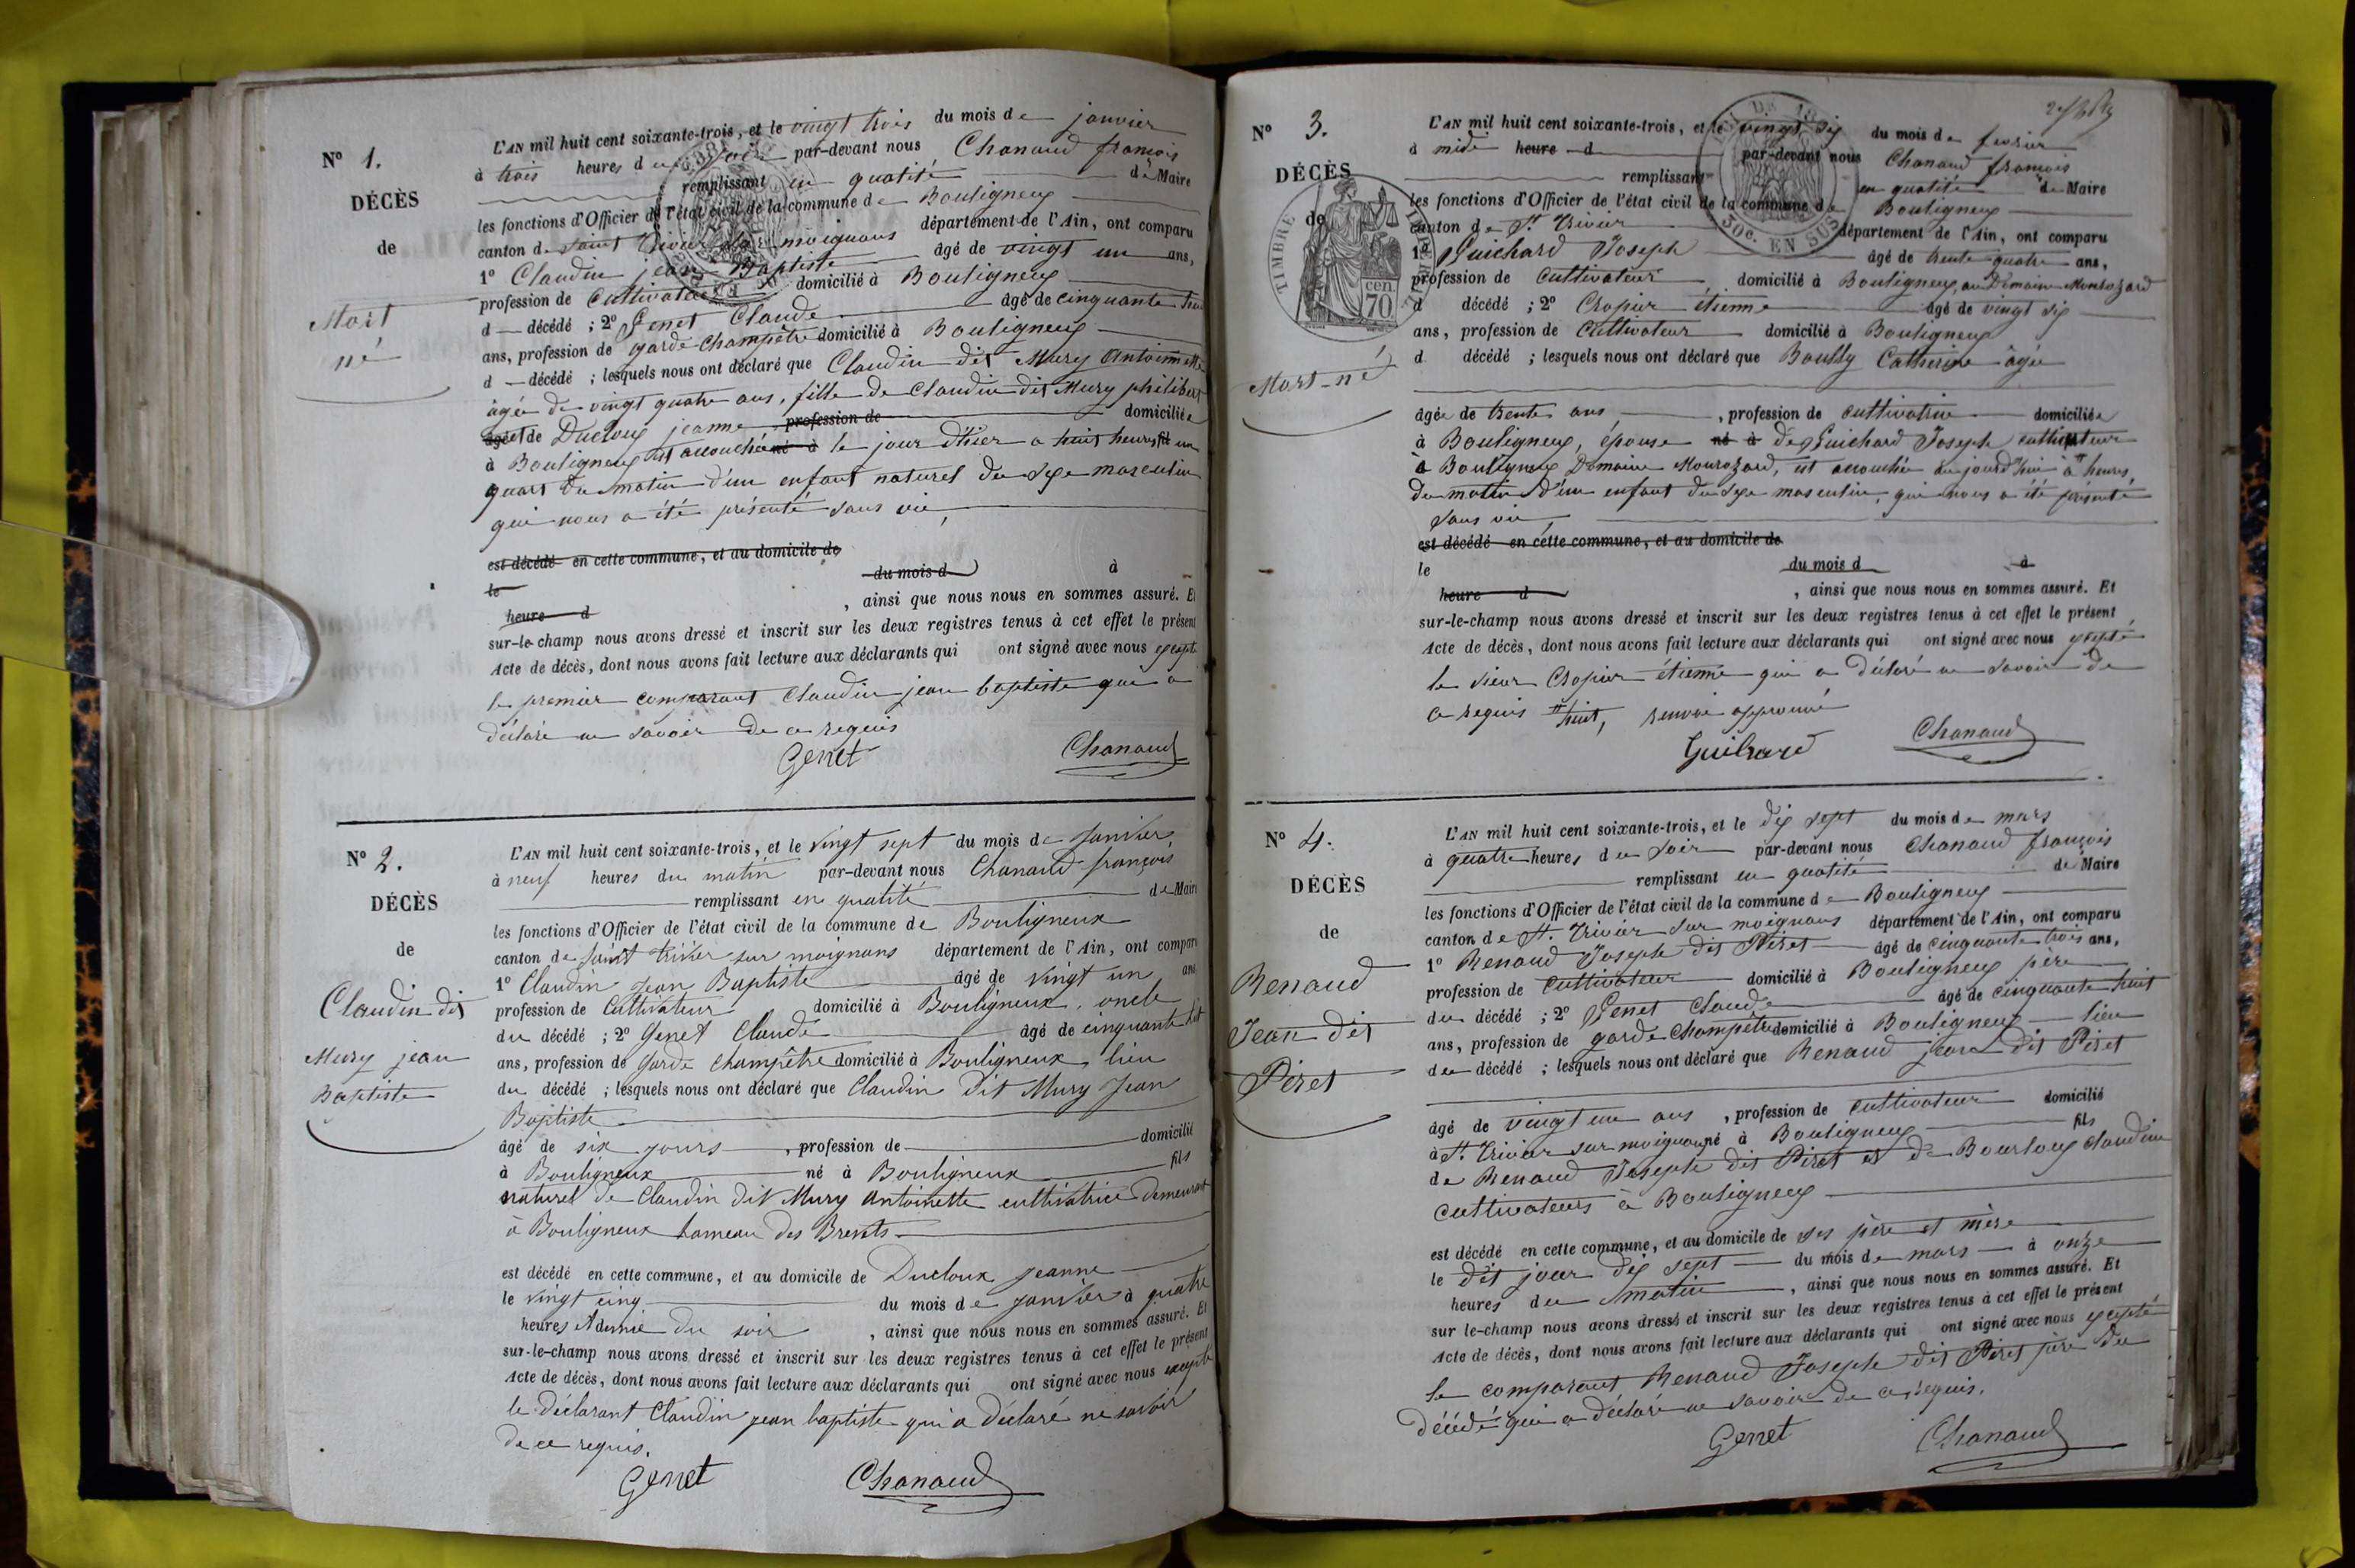 N° 1.
DÉCÈS
de
Mort
né
L'AN mil huit cent soixante-trois, et le vingt trois du mois de janvier
à trois heures du soir par-devant nous Chanaud françois
remplissant en qualité de Maire
les fonctions d'Officier de l'état civil de la commune de Bouligneux
canton de saint Trivier sur moignans département de l'Ain, ont comparu
1° Claudin jean Baptiste âgé de vingt un ans,
profession de Cultivateur domicilié à Bouligneux
d décédé ; 2° Genet Claude âgé de cinquante huit
ans, profession de garde champêtre domicilié à Bouligneux
d décédé ; lesquels nous ont déclaré que Claudin dit Mury Antoinette
âgée de vingt quatre ans, fille de Claudin dit Mury philibert
âgé et de Ducloux jeanne profession de domiciliée
à Bouligneux est accouchée né à le jour d'hier a huit heures fil un
quart du matin d'un enfant naturel du sexe masculin
qui nous a été présenté sans vie,
est décédé en cette commune, et au domicile de
le du mois d à
heure d , ainsi que nous nous en sommes assuré. Et
sur-le-champ nous avons dressé et inscrit sur les deux registres tenus à cet effet le présent
Acte de décès, dont nous avons fait lecture aux déclarants qui ont signé avec nous except
le premier comparant Claudin jean baptiste qui a
déclaré ne savoir de ce requis
Genet Chanaud
N° 2.
DÉCÈS
de
Claudin dit
Mury jean
Baptiste
L'AN mil huit cent soixante-trois, et le vingt sept du mois de Janvier
à neuf heures du matin par-devant nous Chanaud françois
remplissant en qualité de Maire
les fonctions d'Officier de l'état civil de la commune de Bouligneux
canton de saint trivier sur moignans département de l'Ain, ont comparu
1° Claudin Jean Baptiste âgé de vingt un ans
profession de Cultivateur domicilié à Bouligneux, oncle
du décédé ; 2° Genet Claude âgé de cinquante huit
ans, profession de Garde champêtre domicilié à Bouligneux lieu
du décédé ; lesquels nous ont déclaré que Claudin dit Mury Jean
Baptiste
âgé de six jours , profession de domicilié
à Bouligneux né à Bouligneux fils
naturel de Claudin dit Mury Antoinette cultivatrice demeurant
à Bouligneux hameau des Brevets
est décédé en cette commune, et au domicile de Ducloux Jeanne
le vingt cinq du mois de Janvier à quatre
heures et demie du soir , ainsi que nous nous en sommes assuré. Et
sur-le-champ nous avons dressé et inscrit sur les deux registres tenus à cet effet le présent
Acte de décès, dont nous avons fait lecture aux déclarants qui ont signé avec nous excepté
le déclarant Claudin jean baptiste qui a déclaré ne savoir
de ce requis.
Genet Chanaud
N° 3.
DÉCÈS
de
Mort-né
TIMBRE IMPERIAL
cen. 70
30c. EN SUS
L'AN mil huit cent soixante-trois, et le vingt six du mois de fevrier
à midi heure d par-devant nous Chanaud françois
remplissant en qualité de Maire
les fonctions d'Officier de l'état civil de la commune de Bouligneux
canton de St. Trivier département de l'Ain, ont comparu
1° Guichard Joseph âgé de trente quatre ans,
profession de Cultivateur domicilié à Bouligneux, au Domaine Monrozard
d décédé ; 2° Cropier étienne âgé de vingt six
ans, profession de Cultivateur domicilié à Bouligneux
d décédé ; lesquels nous ont déclaré que Boully Catherine âgée
âgée de trente ans , profession de cultivatrice domiciliée
à Bouligneux, épouse né à de Guichard Joseph cultivateur
à Bouligneux Domaine Monrozard, est accouchée aujourd'hui à heures,
du matin d'un enfant du sexe masculin, qui nous a été présenté
sans vie,
est décédé en cette commune, et au domicile de
le du mois d à
heure d , ainsi que nous nous en sommes assuré. Et
sur-le-champ nous avons dressé et inscrit sur les deux registres tenus à cet effet le présent
Acte de décès, dont nous avons fait lecture aux déclarants qui ont signé avec nous excepté
le sieur Cropier étienne qui a déclaré ne savoir de
ce requis huit, renvoi approuvé
Guichard Chanaud
N° 4.
DÉCÈS
de
Renaud
Jean dit
Péret
L'AN mil huit cent soixante-trois, et le dix sept du mois de mars
à quatre heures du soir par-devant nous Chanaud françois
remplissant en qualité de Maire
les fonctions d'Officier de l'état civil de la commune de Bouligneux
canton de St. Trivier sur moignans département de l'Ain, ont comparu
1° Renaud Joseph dit Péret âgé de cinquante trois ans,
profession de Cultivateur domicilié à Bouligneux père
du décédé ; 2° Genet Claude âgé de cinquante huit
ans, profession de garde champêtre domicilié à Bouligneux lieu
du décédé ; lesquels nous ont déclaré que Renaud jean dit Péret
âgé de vingt un ans , profession de cultivateur domicilié
à St. Trivier sur moignans né à Bouligneux fils
de Renaud Joseph dit Péret et de Bourloux Claudine
cultivateurs à Bouligneux
est décédé en cette commune, et au domicile de ses père et mère
le dit jour dix sept du mois de mars à onze
heures du matin , ainsi que nous nous en sommes assuré. Et
sur le-champ nous avons dressé et inscrit sur les deux registres tenus à cet effet le présent
Acte de décès, dont nous avons fait lecture aux déclarants qui ont signé avec nous excepté
le comparant Renaud Joseph dit Péret père du
décédé qui a déclaré ne savoir de ce requis.
Genet Chanaud